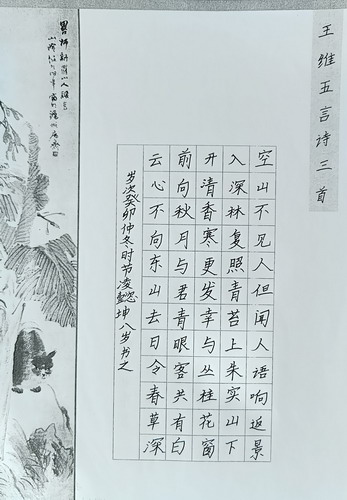 王维五言诗三首
空山不见人但闻人语响返景
入深林复照青苔上朱实山下
开清香寒更发幸与丛桂花窗
前向秋月与君青眼客共有白
云心不向东山去日令春草深
岁次癸卯仲冬时节凌懿坤八岁书之